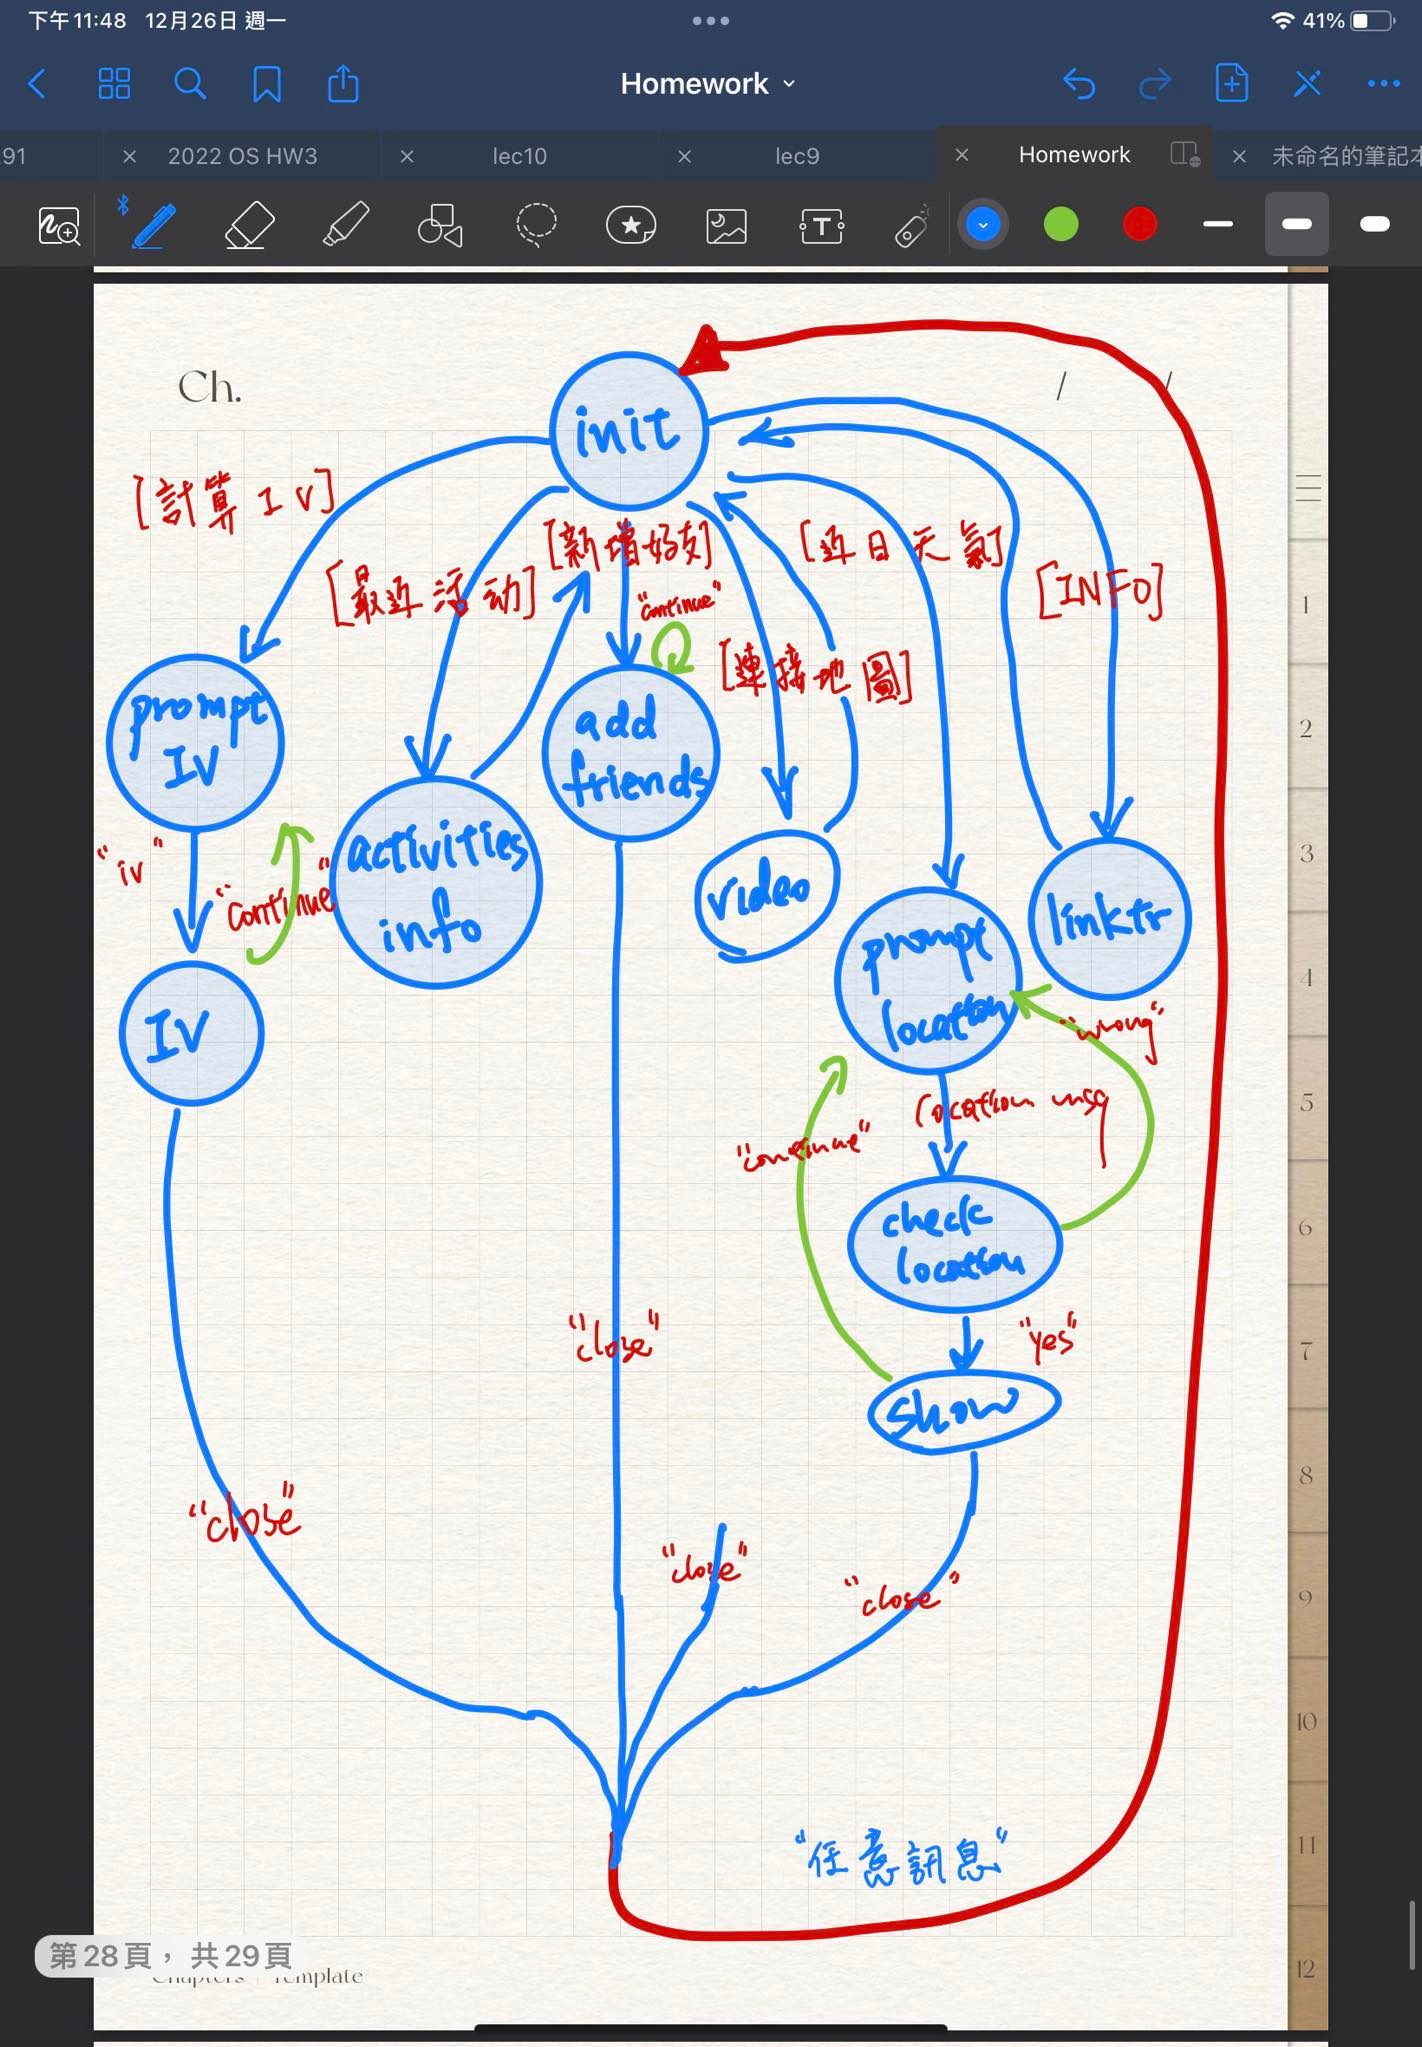 下午11:48 12月26日 週一
41%
Homework
91
2022 OS HW3
lec10
lec9
Homework
未命名的筆記本
Ch.
/ /
init
[計算 IV]
[最近活动]
[新增好友]
[近日天氣]
[INFO]
"continue"
[連接地圖]
prompt
IV
add
friends
"iv"
"continue"
activities
info
video
prompt
location
linktr
IV
"wrong"
location msg
"continue"
check
location
"close"
"yes"
show
"close"
"close"
"close"
"任意訊息"
1
2
3
4
5
6
7
8
9
10
11
12
第28頁，共29頁
Chapters Template